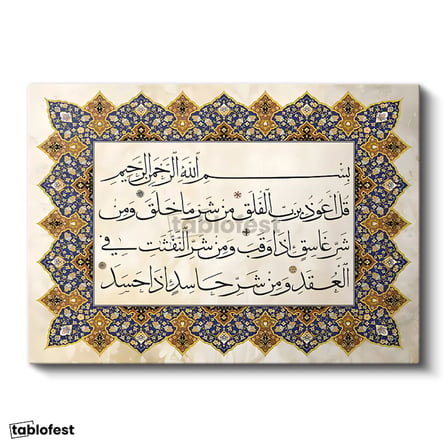 بِسْمِ اللهِ الرَّحْمٰنِ الرَّحِيمِ
قُلْ أَعُوذُ بِرَبِّ الْفَلَقِ مِنْ شَرِّ مَا خَلَقَ وَمِنْ
tablofest
شَرِّ غَاسِقٍ إِذَا وَقَبَ وَمِنْ شَرِّ النَّفَّٰثَٰتِ فِي
الْعُقَدِ وَمِنْ شَرِّ حَاسِدٍ إِذَا حَسَدَ
tablofest